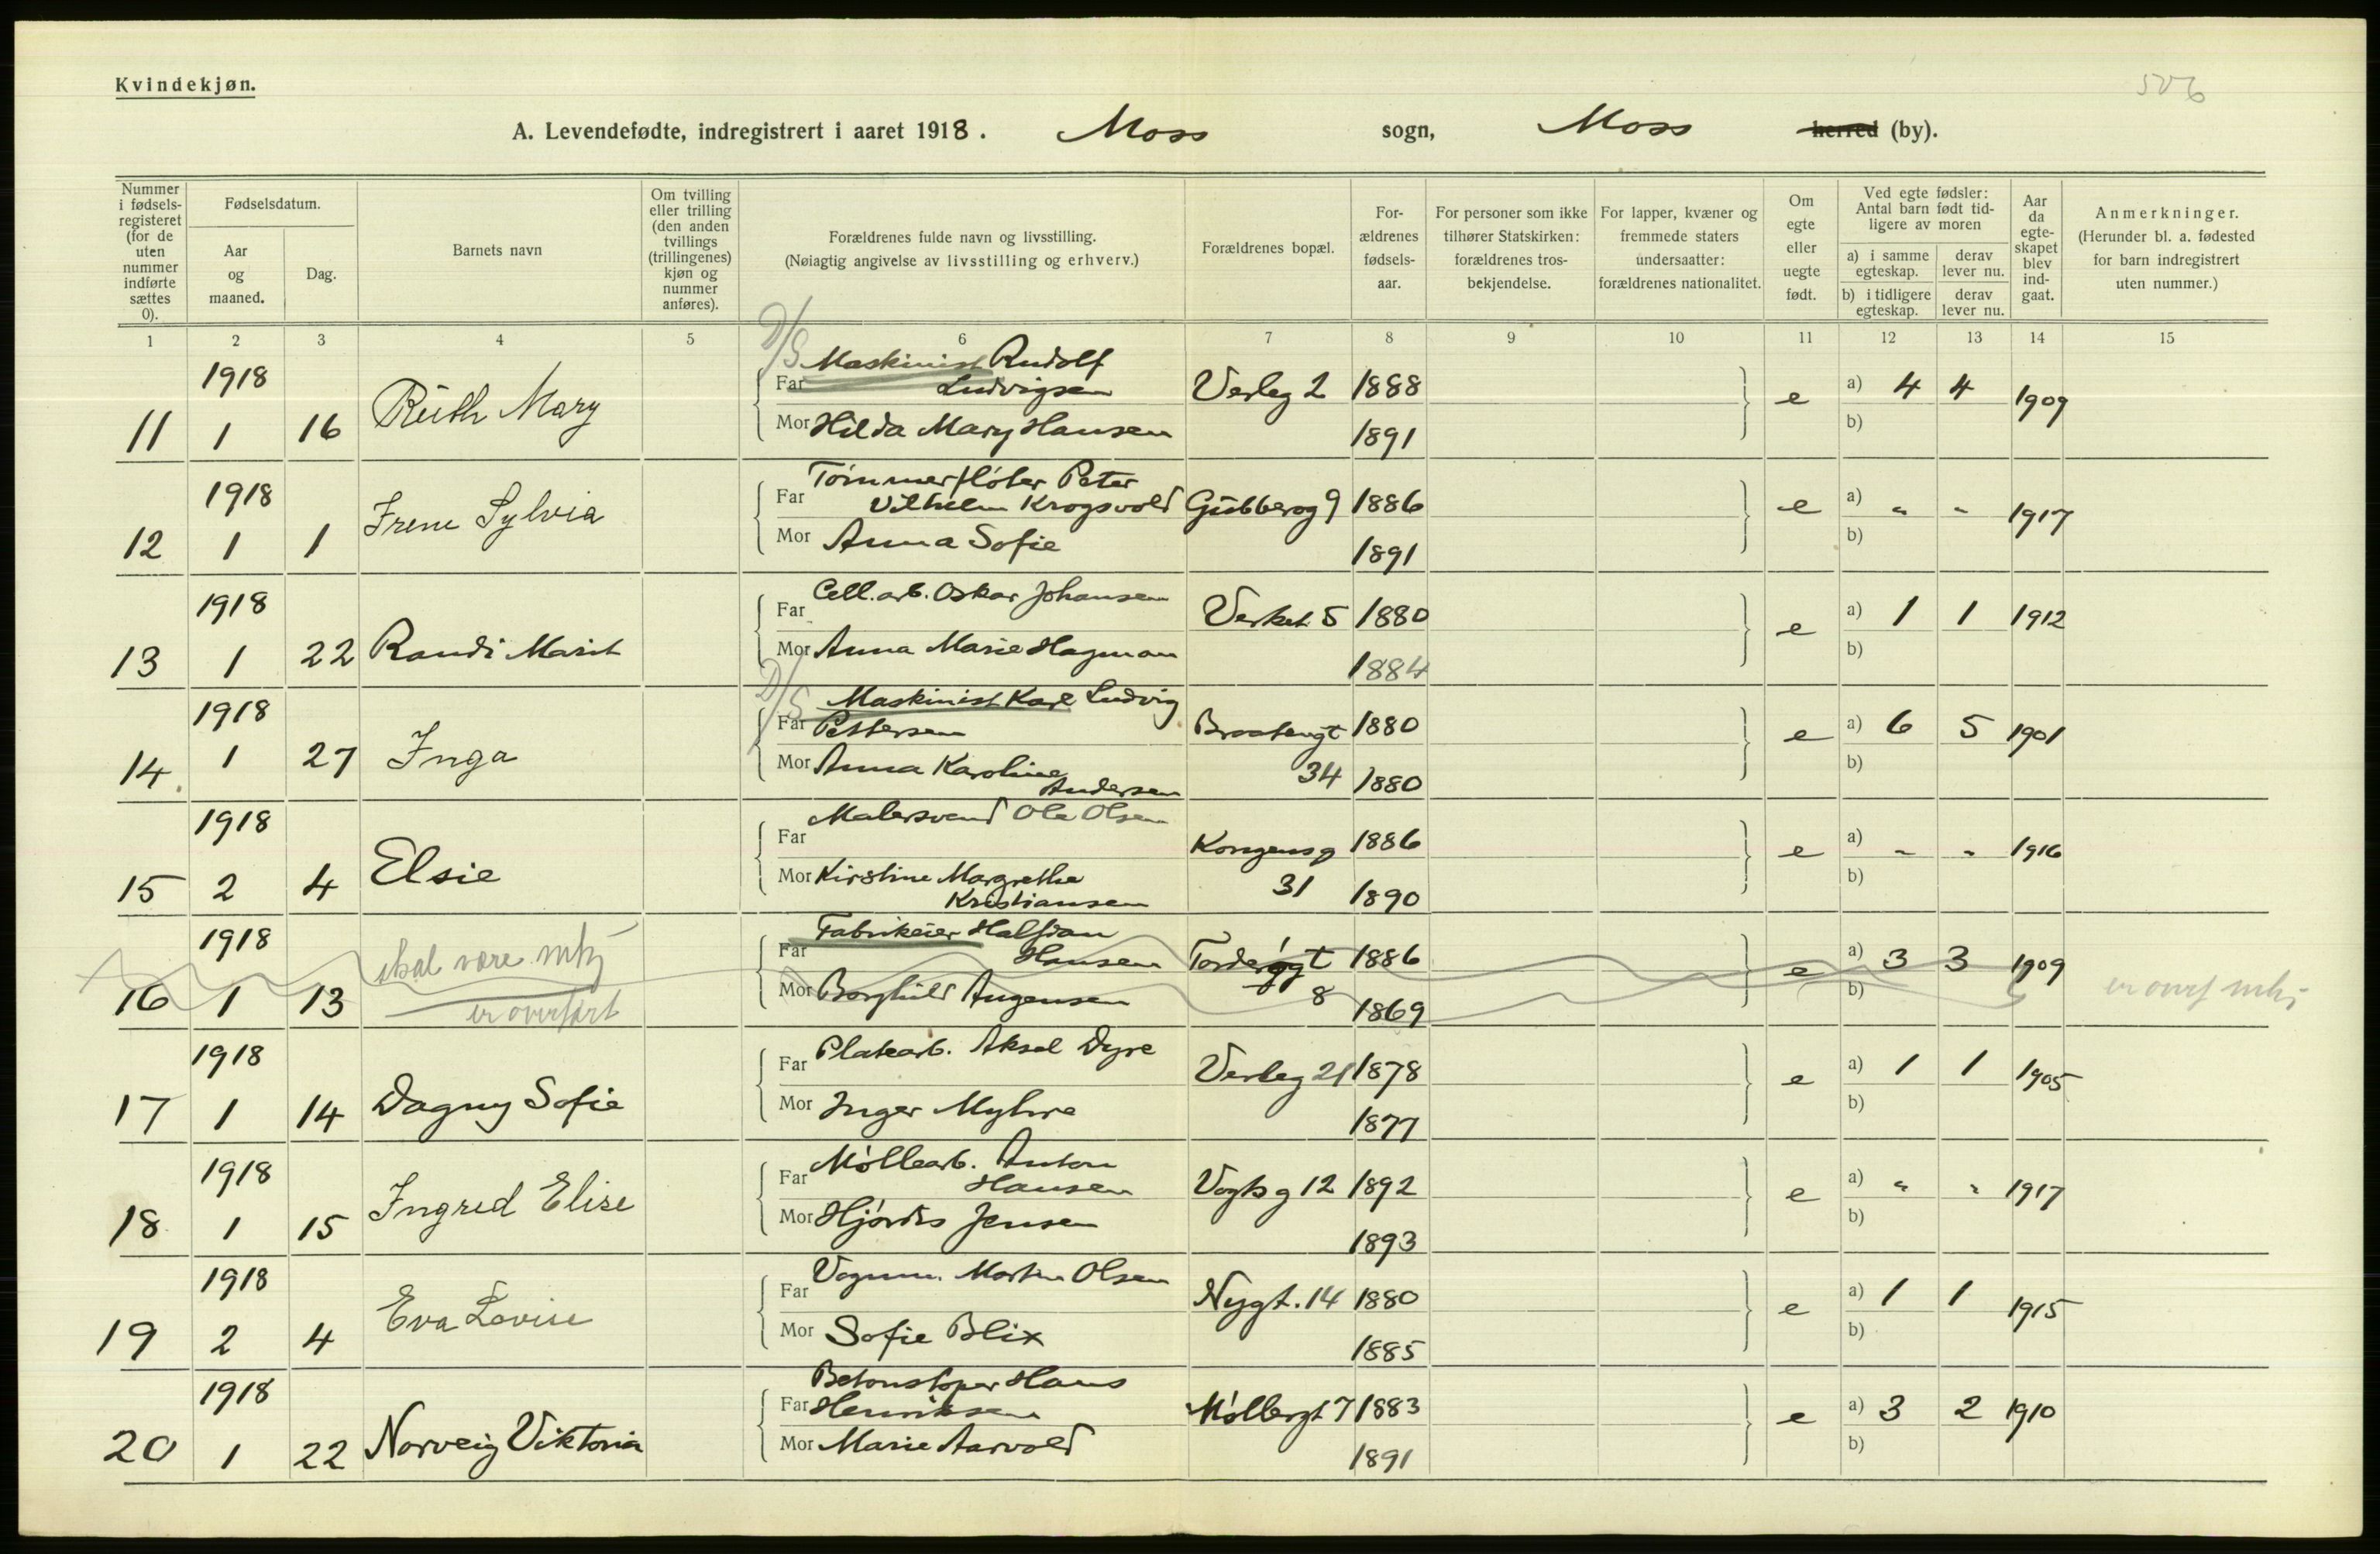 Kvindekjøn.
506
A. Levendefødte, indregistrert i aaret 1918. Moss sogn, Moss herred (by).
Nummer i fødsels-registeret (for de uten nummer indførte sættes 0).
Fødselsdatum.
Aar og maaned.
Dag.
Barnets navn
Om tvilling eller trilling (den anden tvillings (trillingenes) kjøn og nummer anføres).
Forældrenes fulde navn og livsstilling.
(Nøiagtig angivelse av livsstilling og erhverv.)
Forældrenes bopæl.
For-ældrenes fødsels-aar.
For personer som ikke tilhører Statskirken: forældrenes tros-bekjendelse.
For lapper, kvæner og fremmede staters undersaatter: forældrenes nationalitet.
Om egte eller uegte født.
Ved egte fødsler: Antal barn født tid-ligere av moren
a) i samme egteskap. derav lever nu.
b) i tidligere egteskap. derav lever nu.
Aar da egte-skapet blev ind-gaat.
Anmerkninger.
(Herunder bl. a. fødested for barn indregistrert uten nummer.)
1 2 3 4 5 6 7 8 9 10 11 12 13 14 15
D/S
1918 Far Maskinist Rudolf
Ludvigsen Verleg 2 1888 e a) 4 4 1909
11 1 16 Ruth Mary Mor Hilda Mary Hansen 1891 b)
1918 Far Tømmerfløter Peter
Vilhelm Krogsvold Gubberog 9 1886 e a) " " 1917
12 1 1 Irene Sylvia Mor Anna Sofie 1891 b)
1918 Far Cell.arb. Oskar Johansen Verket 5 1880 e a) 1 1 1912
13 1 22 Randi Marit Mor Anna Marie Hagman 1884 b)
D/S
1918 Far Maskinist Karl Ludvig
Pettersen Braatengt 1880 e a) 6 5 1901
14 1 27 Inga Mor Anna Karoline
Andersen 34 1880 b)
1918 Far Malersvend Ole Olsen Kongensg 1886 e a) " " 1916
15 2 4 Elsie Mor Kirstine Margrethe
Kristiansen 31 1890 b)
1918 skal være mkj Far Fabrikeier Halfdan
Hansen 1886 e a) 3 3 1909
16 1 13 er overført Mor Borghild Augensen 8 1869 b) er overf mkj
1918 Far Platearb. Aksel Dyre Verleg 21 1878 e a) 1 1 1905
17 1 14 Dagny Sofie Mor Inger Myhre 1877 b)
1918 Far Møllearb. Anton
Hansen Vogtsg 12 1892 e a) " " 1917
18 1 15 Ingrid Elise Mor Hjørdis Jensen 1893 b)
1918 Far Vognm. Martin Olsen Nygt. 14 1880 e a) 1 1 1915
19 2 4 Eva Lovise Mor Sofie Blix 1885 b)
1918 Far Betonstøper Hans
Henriksen Møllergt 7 1883 e a) 3 2 1910
20 1 22 Norveig Viktoria Mor Marie Aarvold 1891 b)